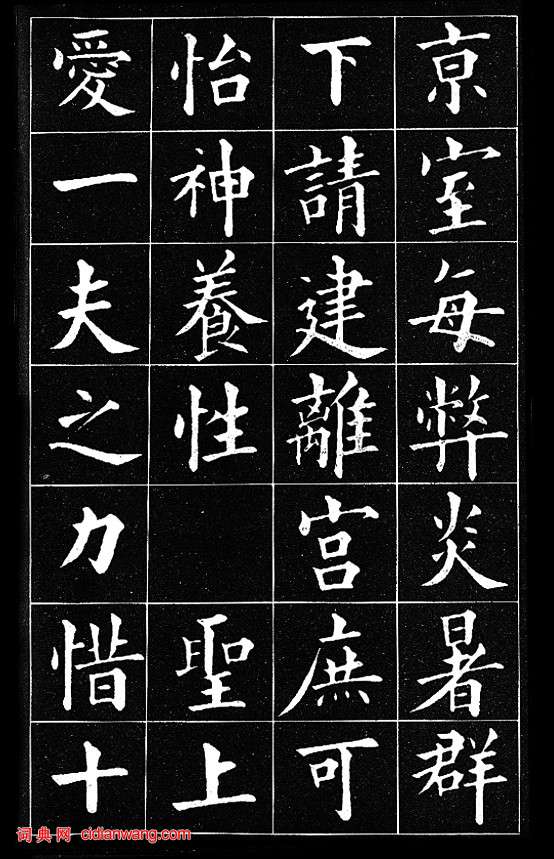 京室每弊炎暑群
下請建離宮庶可
怡神養性 聖上
愛一夫之力惜十
词典网 cidianwang.com